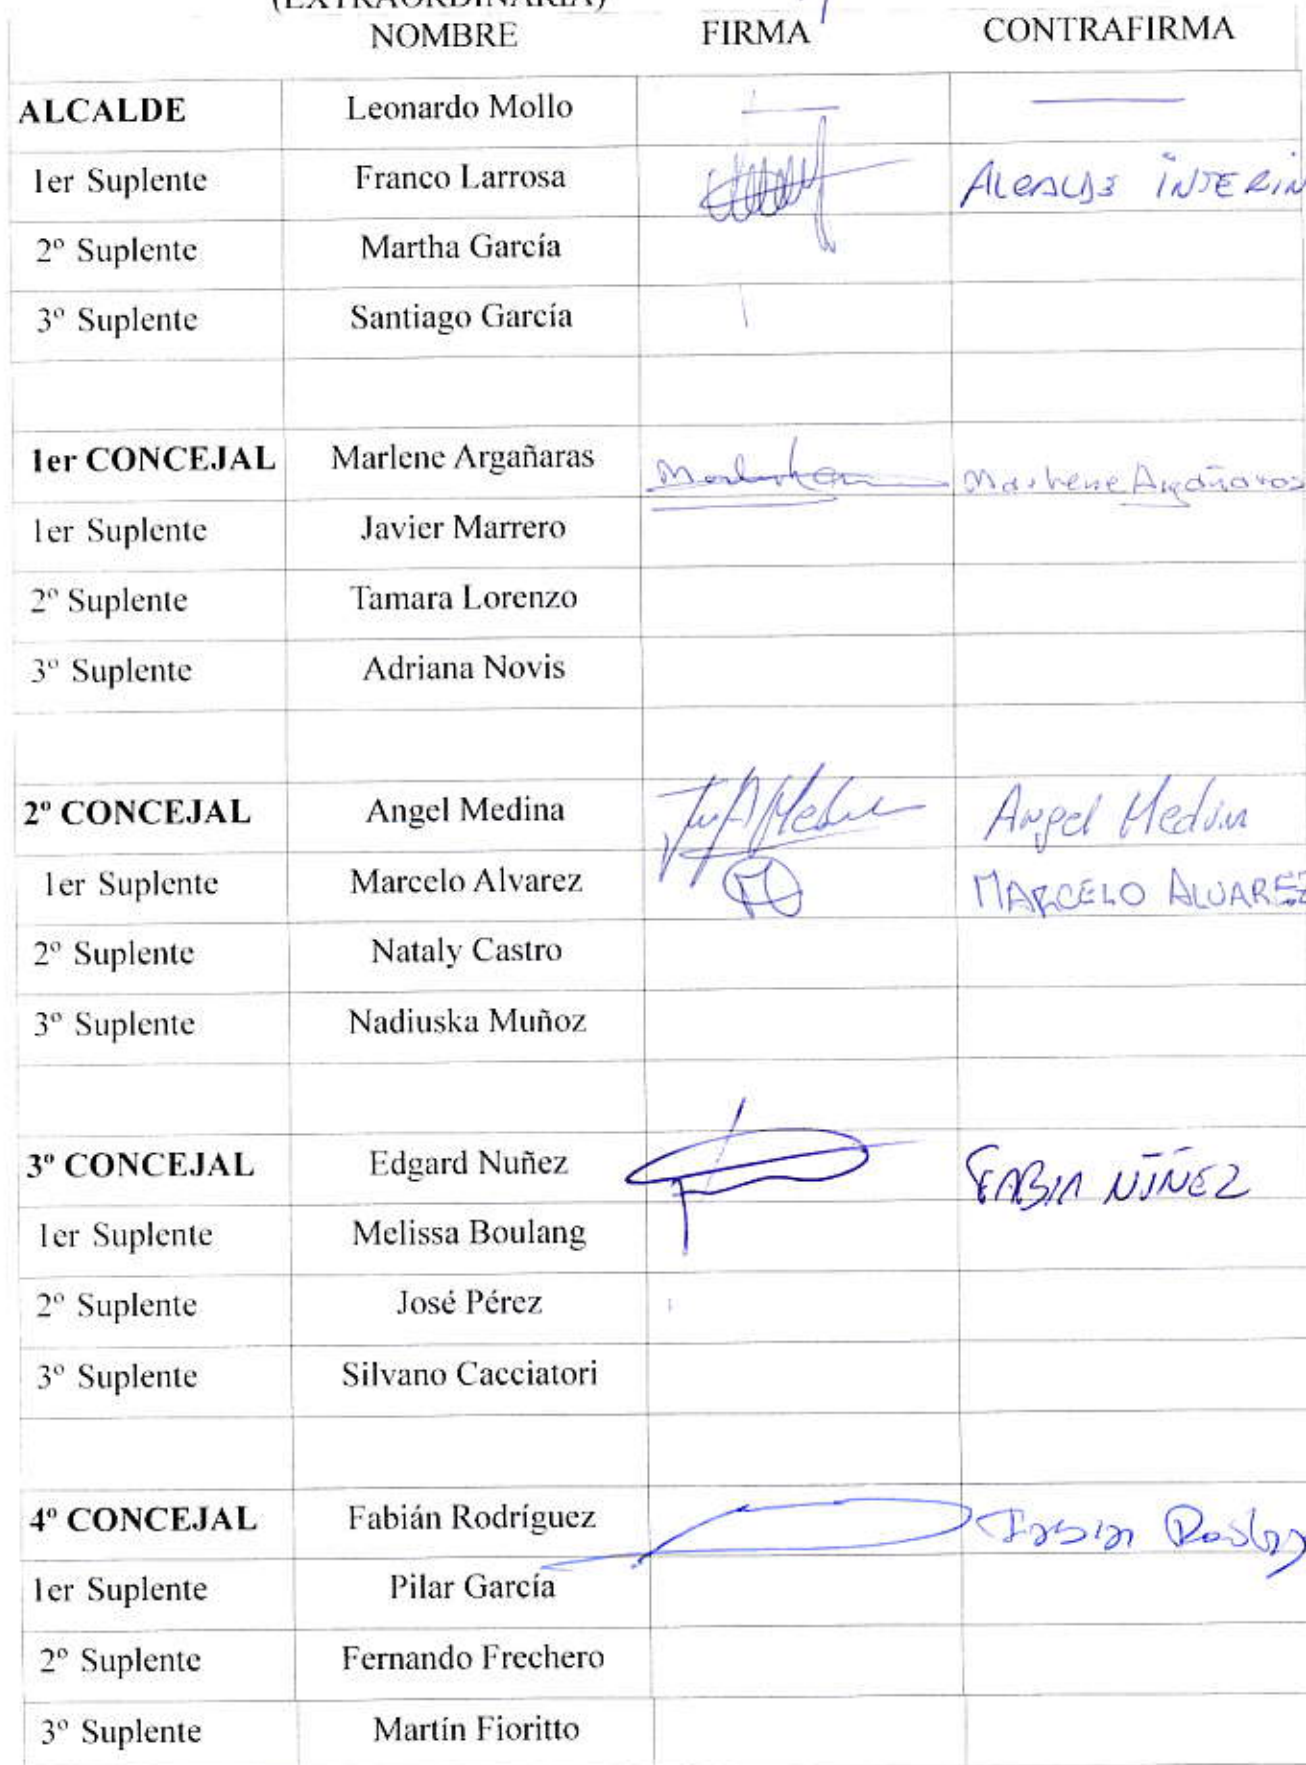 (EXTRAORDINARIA)
NOMBRE FIRMA CONTRAFIRMA
ALCALDE Leonardo Mollo
1er Suplente Franco Larrosa ALCALDE INTERIN
2º Suplente Martha García
3º Suplente Santiago García
1er CONCEJAL Marlene Argañaras Marlene Argañaras
1er Suplente Javier Marrero
2º Suplente Tamara Lorenzo
3º Suplente Adriana Novis
2º CONCEJAL Angel Medina Angel Medina
1er Suplente Marcelo Alvarez MARCELO ALVAREZ
2º Suplente Nataly Castro
3º Suplente Nadiuska Muñoz
3º CONCEJAL Edgard Nuñez NÚÑEZ
1er Suplente Melissa Boulang
2º Suplente José Pérez
3º Suplente Silvano Cacciatori
4º CONCEJAL Fabián Rodríguez Fabian
1er Suplente Pilar García
2º Suplente Fernando Frechero
3º Suplente Martín Fioritto